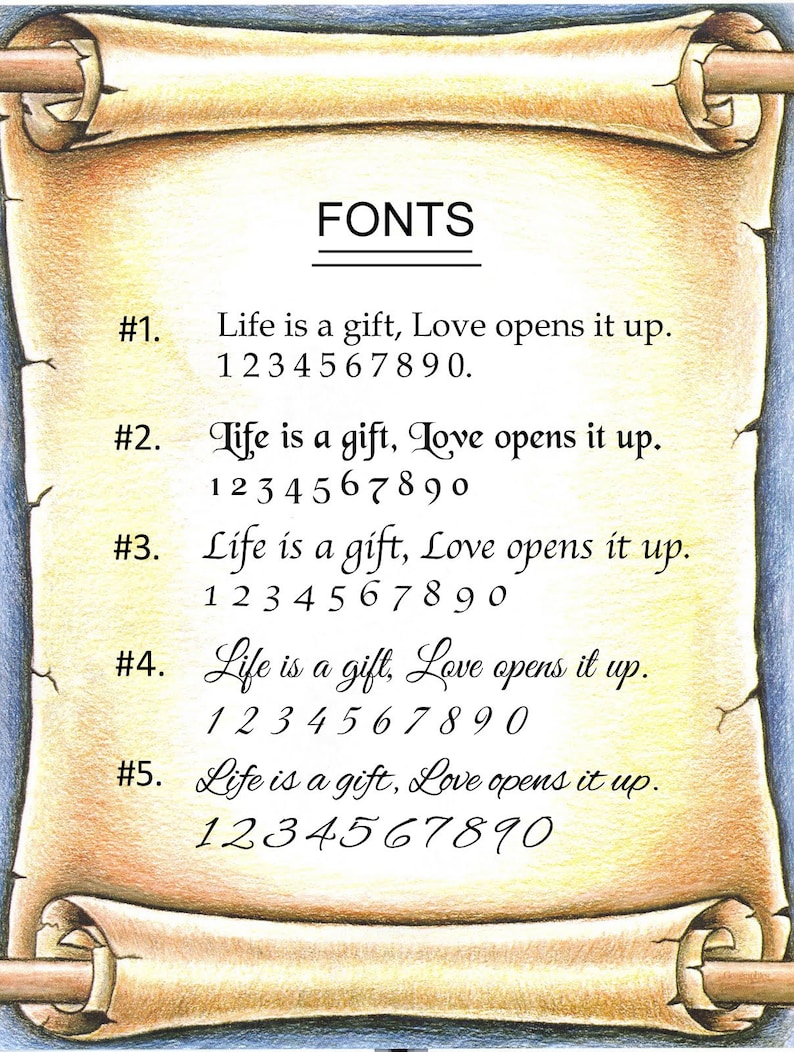 FONTS
#1. Life is a gift, Love opens it up.
1 2 3 4 5 6 7 8 9 0.
#2. Life is a gift, Love opens it up.
1 2 3 4 5 6 7 8 9 0
#3. Life is a gift, Love opens it up.
1 2 3 4 5 6 7 8 9 0
#4. Life is a gift, Love opens it up.
1 2 3 4 5 6 7 8 9 0
#5. Life is a gift, Love opens it up.
1 2 3 4 5 6 7 8 9 0